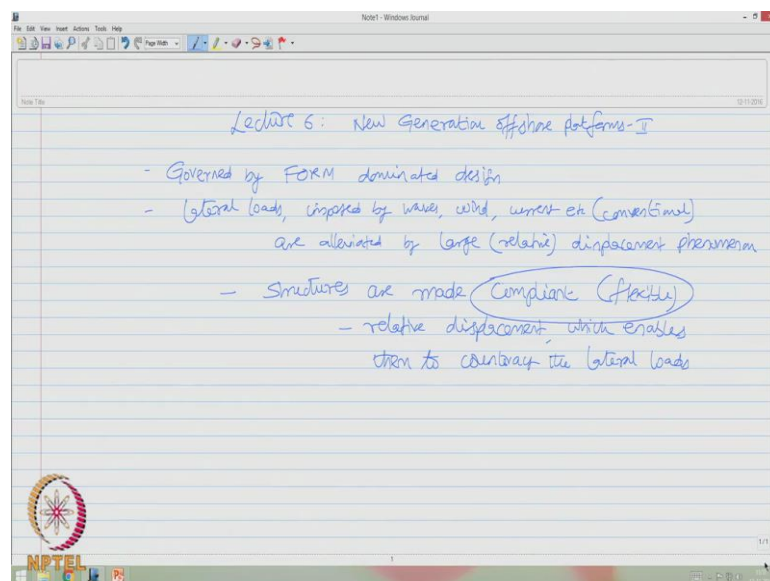 Note1 - Windows Journal
File Edit View Insert Actions Tools Help
Page Width
Note Title
12-11-2016
Lecture 6: New Generation offshore platforms - II
- Governed by FORM dominated design
- lateral loads, imposed by waves, wind, current etc (conventional)
are alleviated by large (relative) displacement phenomenon
- structures are made compliant (flexible)
- relative displacement, which enables
them to counteract the lateral loads
NPTEL
1
1/1